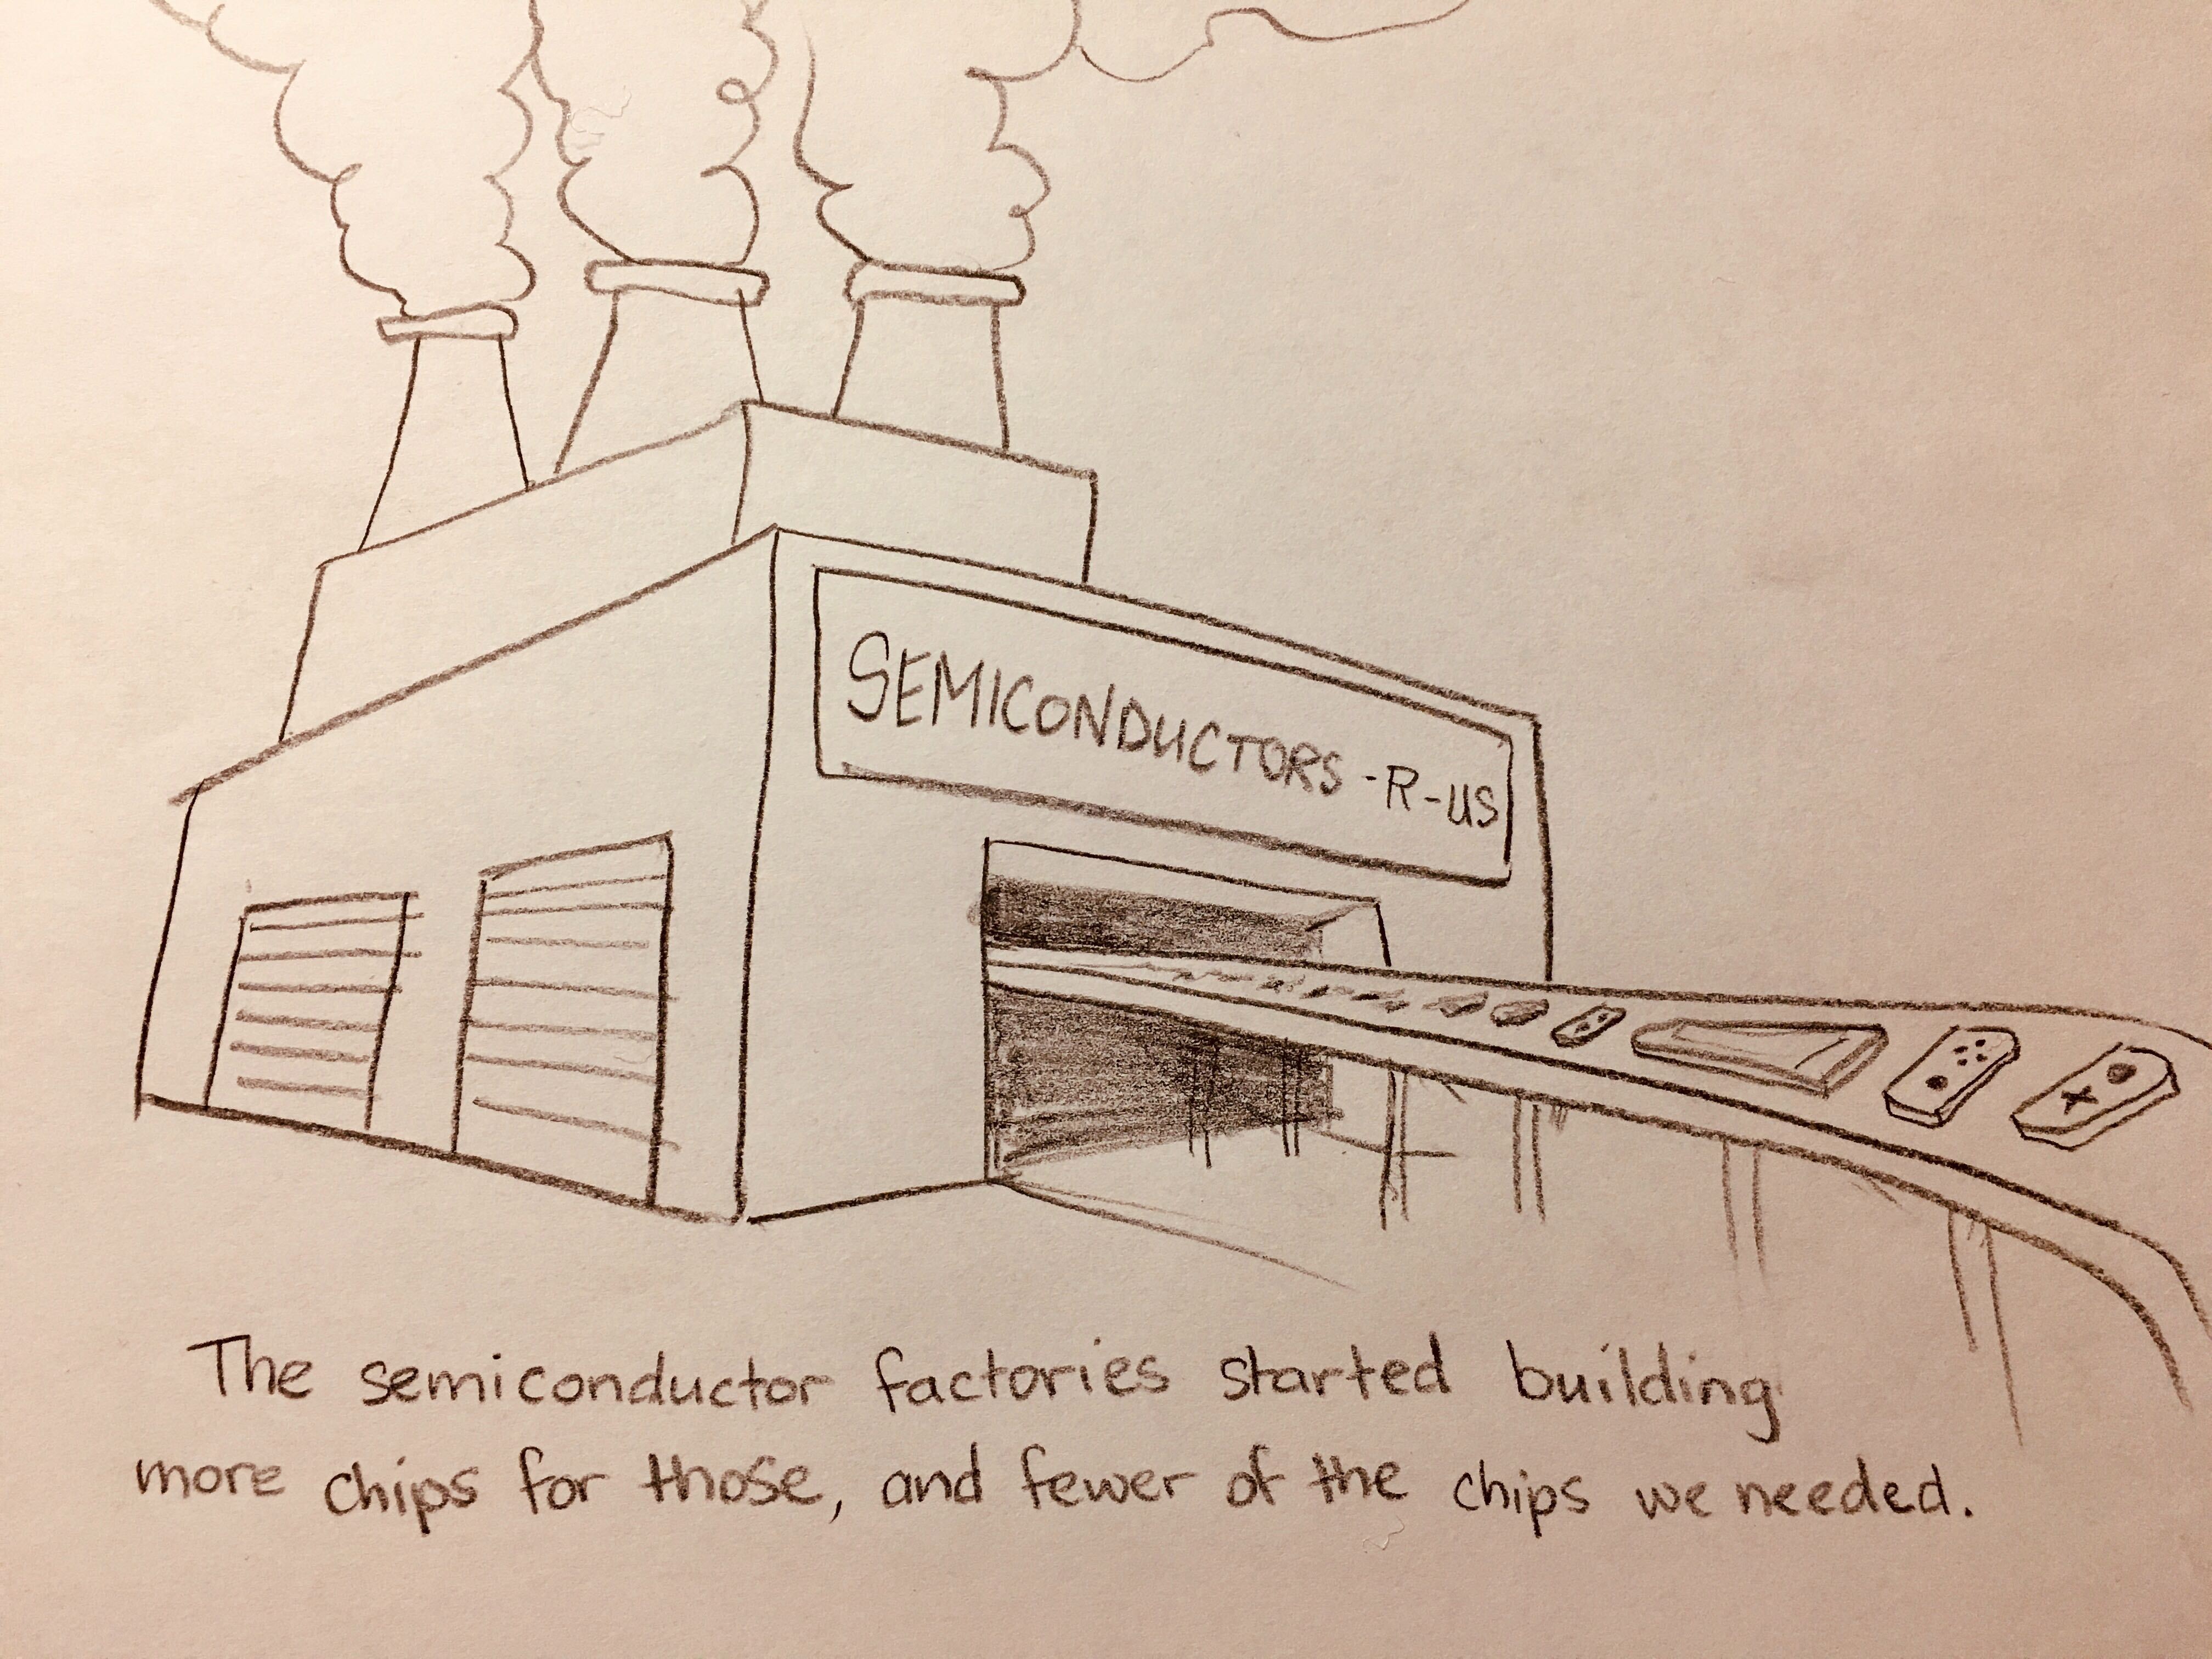 SEMICONDUCTORS-R-US
The semiconductor factories started building
more chips for those, and fewer of the chips we needed.